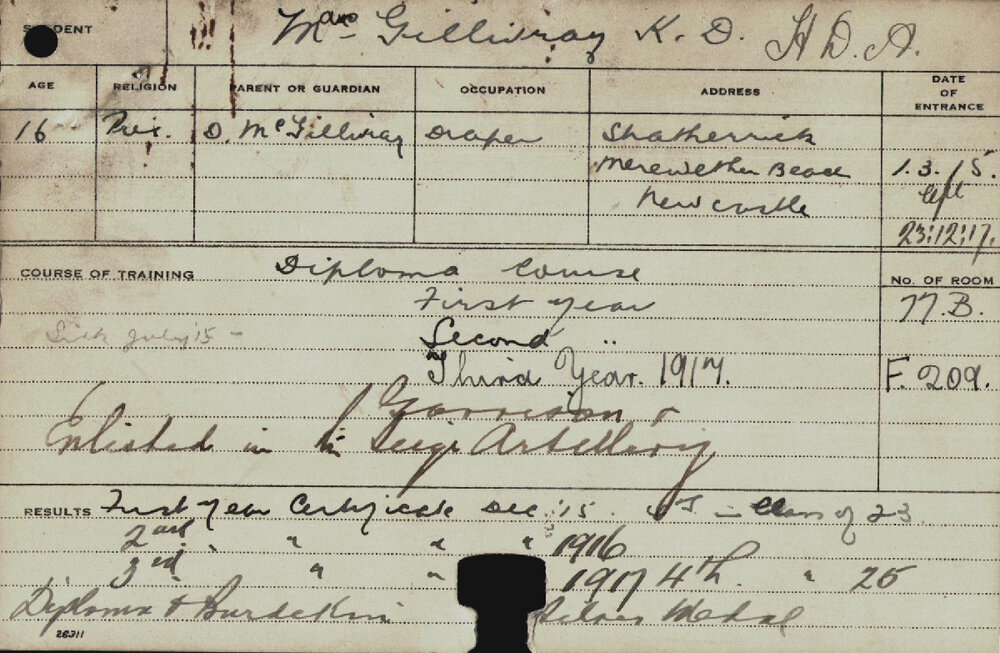 STUDENT Mac Gillivray K. D. H D. A.
AGE RELIGION PARENT OR GUARDIAN OCCUPATION ADDRESS DATE OF ENTRANCE
16 Pres. D. McGillivray Draper Stratherrick
Merewether Beach 1.3.15.
Newcastle left
23:12:17.
COURSE OF TRAINING Diploma Course No. OF ROOM
First year 77 B.
Sick July '15 - Second "
Third Year. 1917. F. 209.
Garrison &
Enlisted in Siege Artillery
RESULTS First year Certificate Dec '15 in Class of 23
2nd " " " " 1916
3rd " " 1917 4th. " 25
Diploma & Burdekin Silver Medal
28311